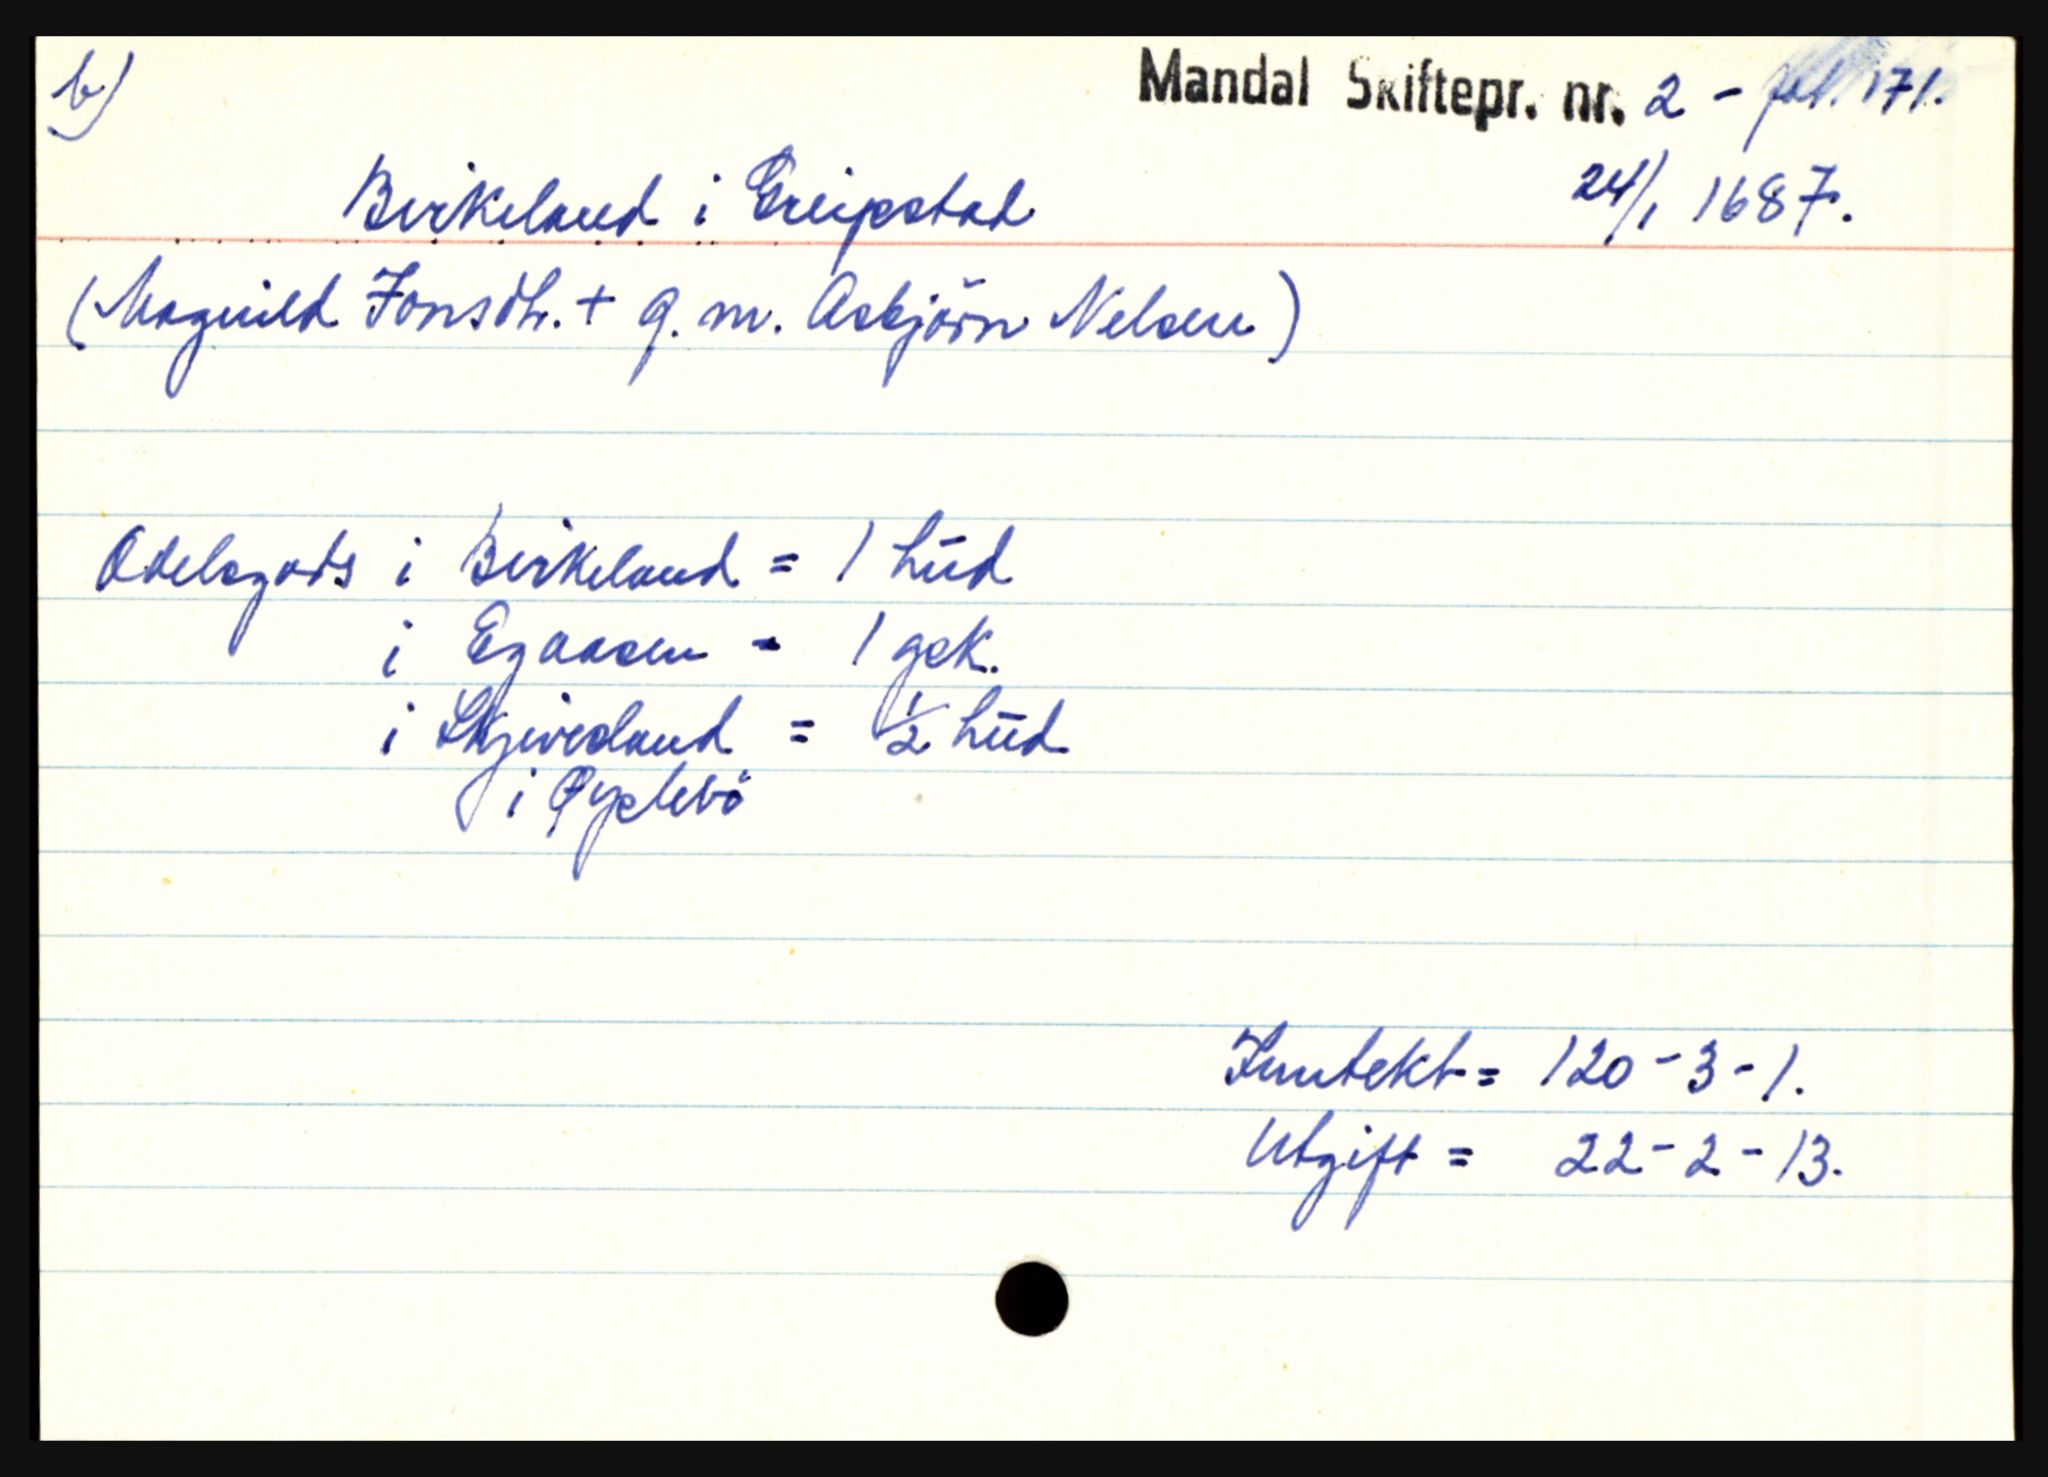 b)
Mandal Skiftepr. nr. 2 - fol. 171.
Birkeland i Greipstad
24/1 1687.
(Magnild Jonsdtr. + g. m. Asbjörn Nelsen)
Odelsgods i Birkeland = 1 hud
i Egaasen - 1 gsk.
i Skjevesland = 1/2 hud
i Øyslebö
Inntekt = 120 - 3 - 1.
Utgift = 22 - 2 - 13.